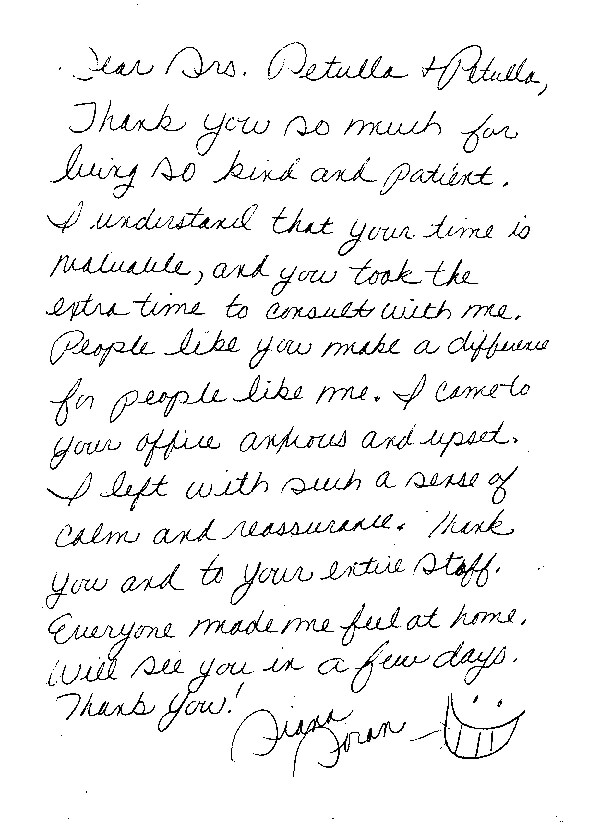 Dear Drs. Petulla & Petulla,
Thank you so much for
being so kind and patient.
I understand that your time is
valuable, and you took the
extra time to consult with me.
People like you make a difference
for people like me. I came to
your office anxious and upset.
I left with such a sense of
calm and reassurance. Thank
you and to your entire staff.
Everyone made me feel at home.
Will see you in a few days.
Thank you!
Diana
Doran